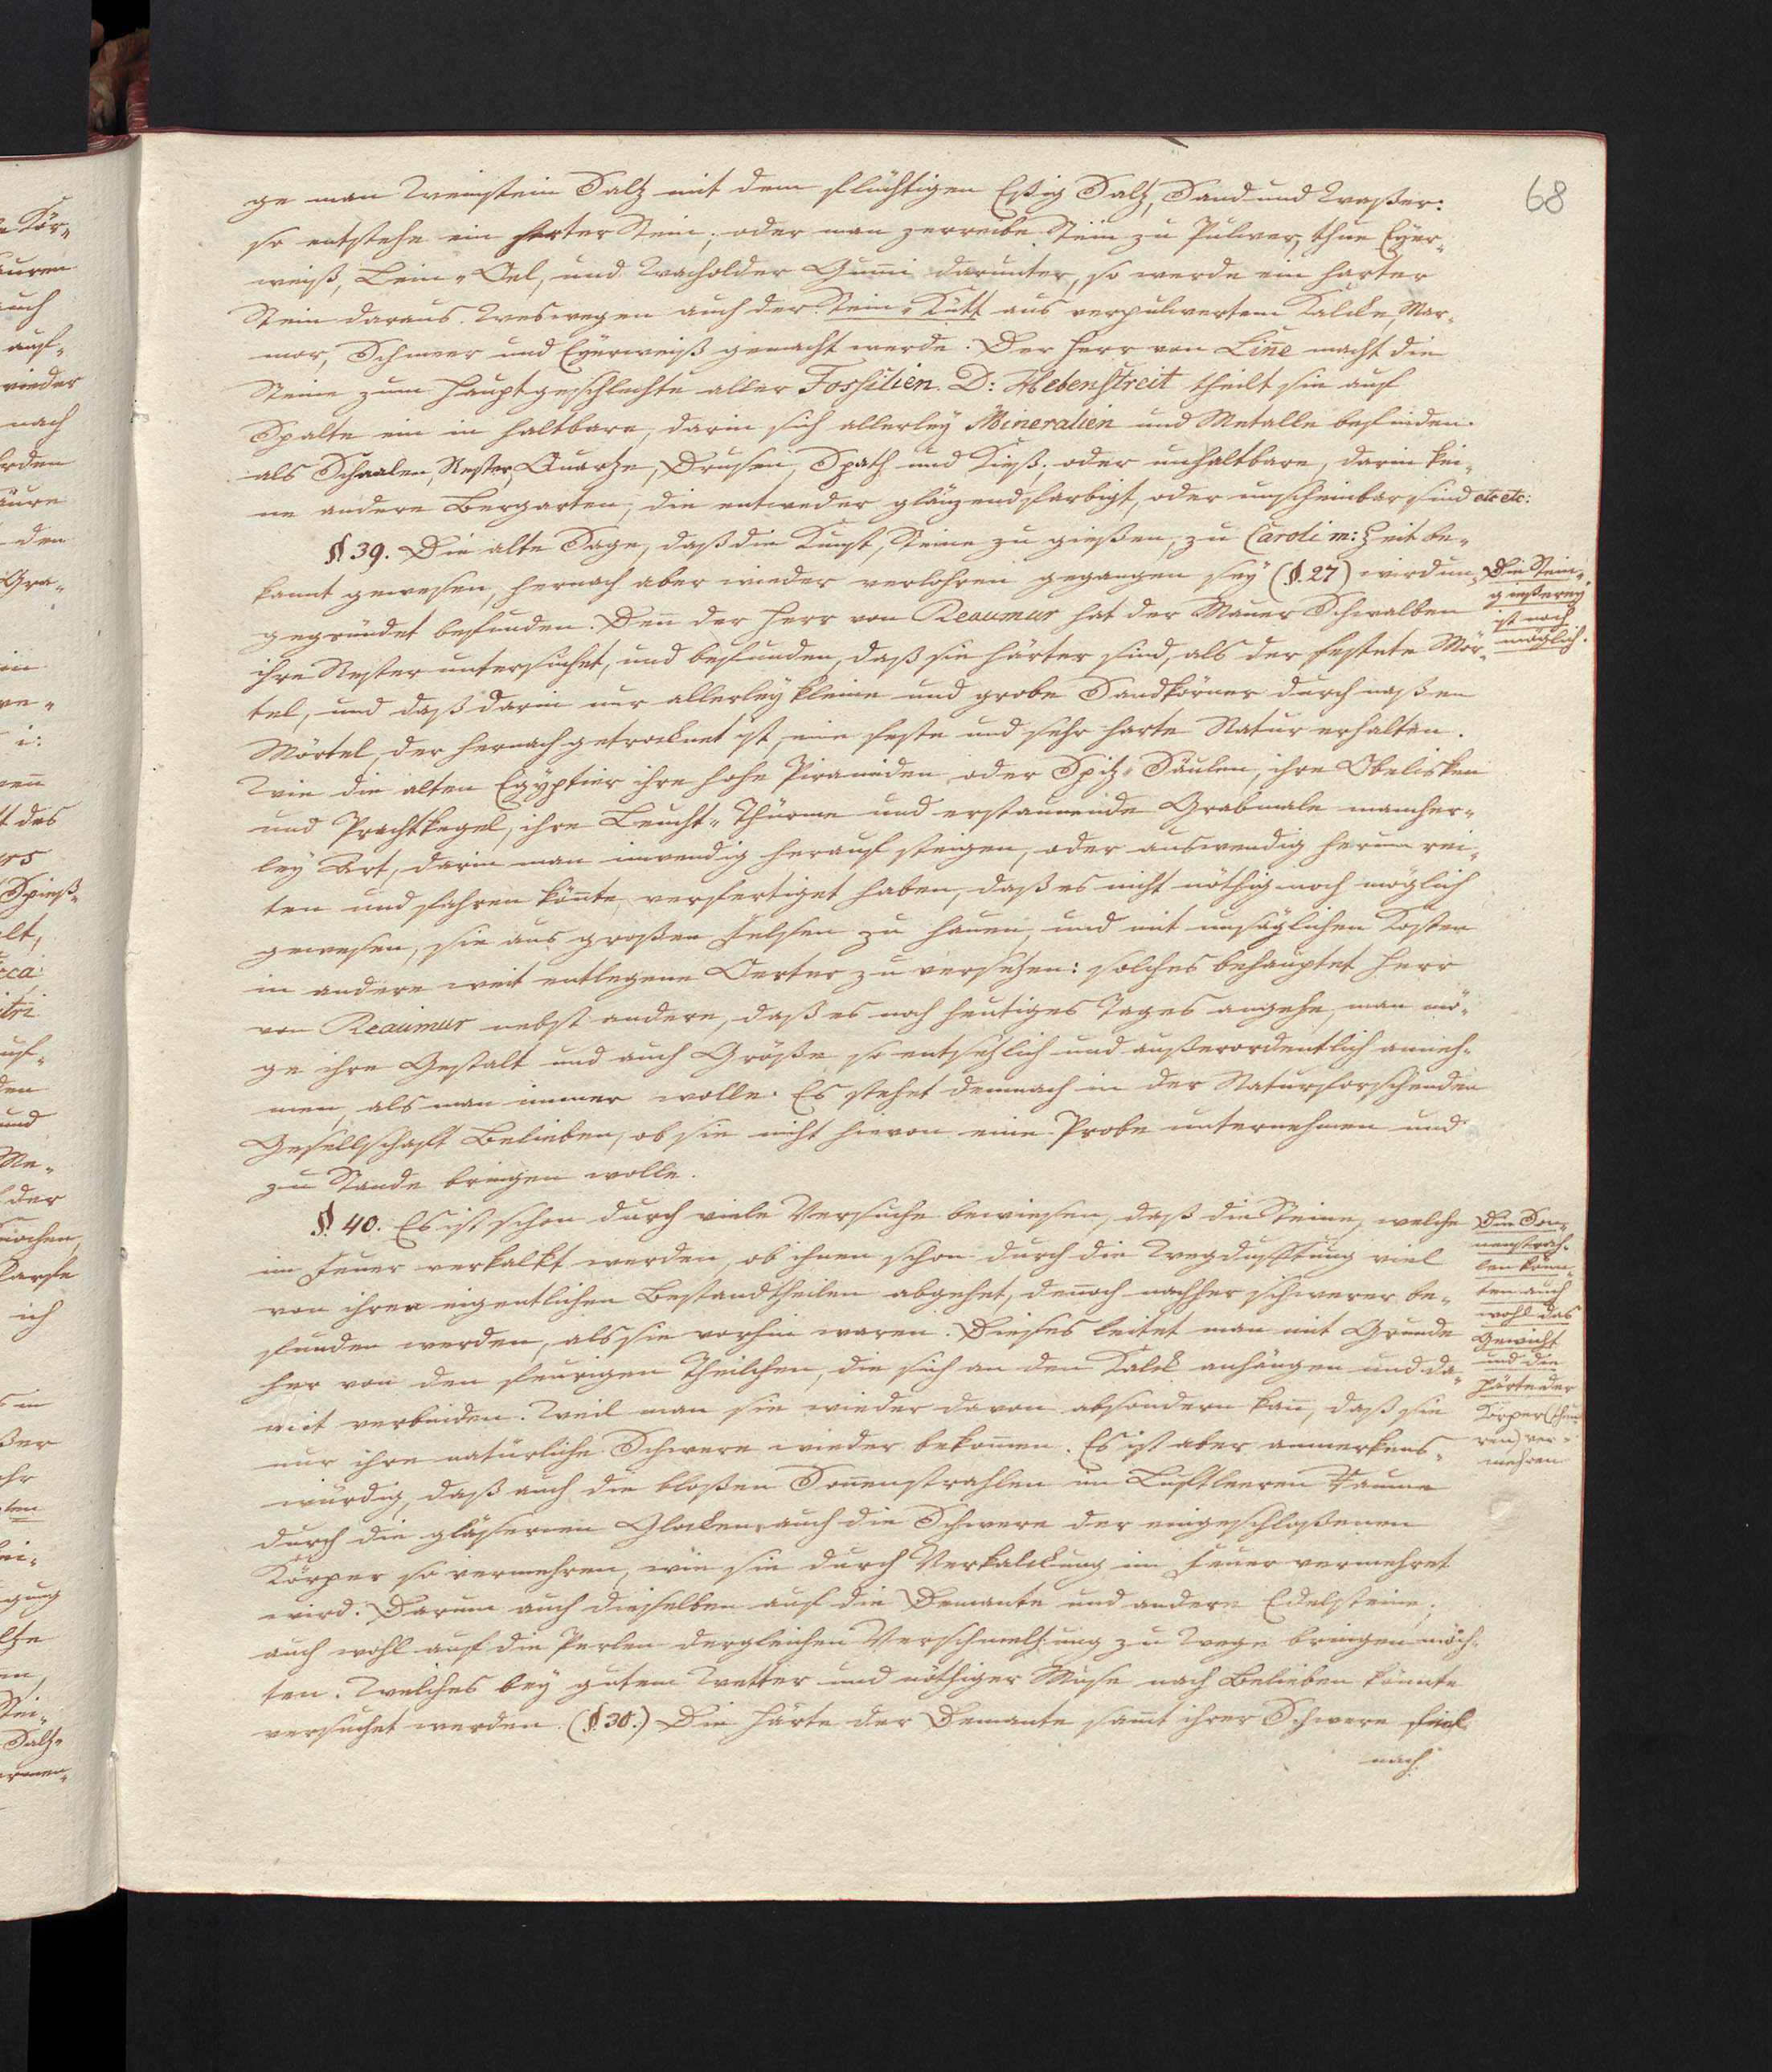 68
ge man Weinstein Saltz mit dem flüchtigen Eßig Saltz, Sand und Waßer:
so entstehe ein harter Stein; oder man zerreibe Stein zu Pulver, thue Eyer„
weiß, Lein„Oel, und Wacholder Gum̅i darunter, so werde ein harter
Stein daraus. Weswegen auch der Stein„Kütt aus verpulvertem Kalcke, Mar„
mor, Schmeer und Eyerweiß gemacht werde. Der Herr von Lin̅e macht die
Steine zum Hauptgeschlechte aller Fossilien. D: Hebenstreit theilt sie auf
Spalte ein in haltbare, darin sich allerley Mineralien und Metalle befinden.
als Schaalen, Nester, Quartze, Drusen, Spath und Kieß; oder unhaltbare, darin kei„
ne andere Bergarten, die entweder gläntzendfarbigt, oder unscheinbar sind etc etc:
§ 39. Die alte Sage, daß die Kunst, Steine zu gießen, zu Caroli m: Zeit be„
kannt gewesen, hernach aber wieder verlohren gegangen sey (§. 27) wird un„
gegründet befunden. Den̅ der Herr von Reaumur hat der Mauer Schwalben
ihre Nester untersuchet, und befunden, daß sie härter sind, als der festete Mör„
tel, und daß darin nur allerley kleine und grobe Sandkörner durch naßen
Mörtel, der hernach getrocknet ist, eine feste und sehr harte Natur erhalten.
Wie die alten Egyptier ihre hohe Piramiden oder Spitz„Säulen, ihre Obelisken
und Prachtkegel, ihre Leucht„Thürme und erstaunende Grabmale mancher„
ley Art, darin man inwendig herauf steigen, oder auswendig herum rei„
ten und fahren kön̅te, verfertiget haben, daß es nicht nöthig noch möglich
gewesen, sie aus großen Felsen zu hauen, und mit unsäglichen Kosten
in andere weit entlegene Oerter zu versetzen: solches behauptet Herr
von Reaumur nebst andern, daß es noch heutiges Tages angehe, man mö„
ge ihre Gestalt und auch Größe so entsetzlich und außerordentlich anneh„
men, als man immer wolle. Es stehet demnach in der Naturforschenden
Gesellschaft Belieben, ob sie nicht hievon eine Probe unternehmen und
zu Stande bringen wolle.
Die Stein„
gießerey
ist noch
möglich.
§. 40. Es ist schon durch viele Versuche bewiesen, daß die Steine, welche
im Feuer verkalkt werden, ob ihnen schon durch die Wegduftung viel
von ihren eigentlichen Bestandtheilen abgehet, den̅och nachher schwerer be„
funden werden, als sie vorhin waren. Dieses leitet man mit Grunde
her von den feurigen Theilchen, die sich an den Kalck anhängen und da„
mit verbinden. Weil man sie wieder davon absondern kan̅, daß sie
nur ihre natürliche Schwere wieder bekom̅en. Es ist aber anmerkens„
würdig, daß auch die bloßen Son̅enstrahlen im Luftleeren Raume
durch die gläßernen Glocken auch die Schwere der eingeschloßenen
Körper so vermehren, wie sie durch Verkalckung im Feuer vermehret
wird. Darum auch dieselben auf die Demante und andere Edelsteine,
auch wohl auf die Perlen dergleichen Verschmeltzung zu Wege bringen möch„
ten. Welches bey gutem Wetter und nöthiger Muse nach Belieben könnte
versuchet werden. (§. 30.) Die Härte der Demante sam̅t ihrer Schwere sind
nach
Die Son„
nenstrah„
len könn„
ten auch
wohl das
Gewicht
und die
Härte der
Körper
ver„
mehren